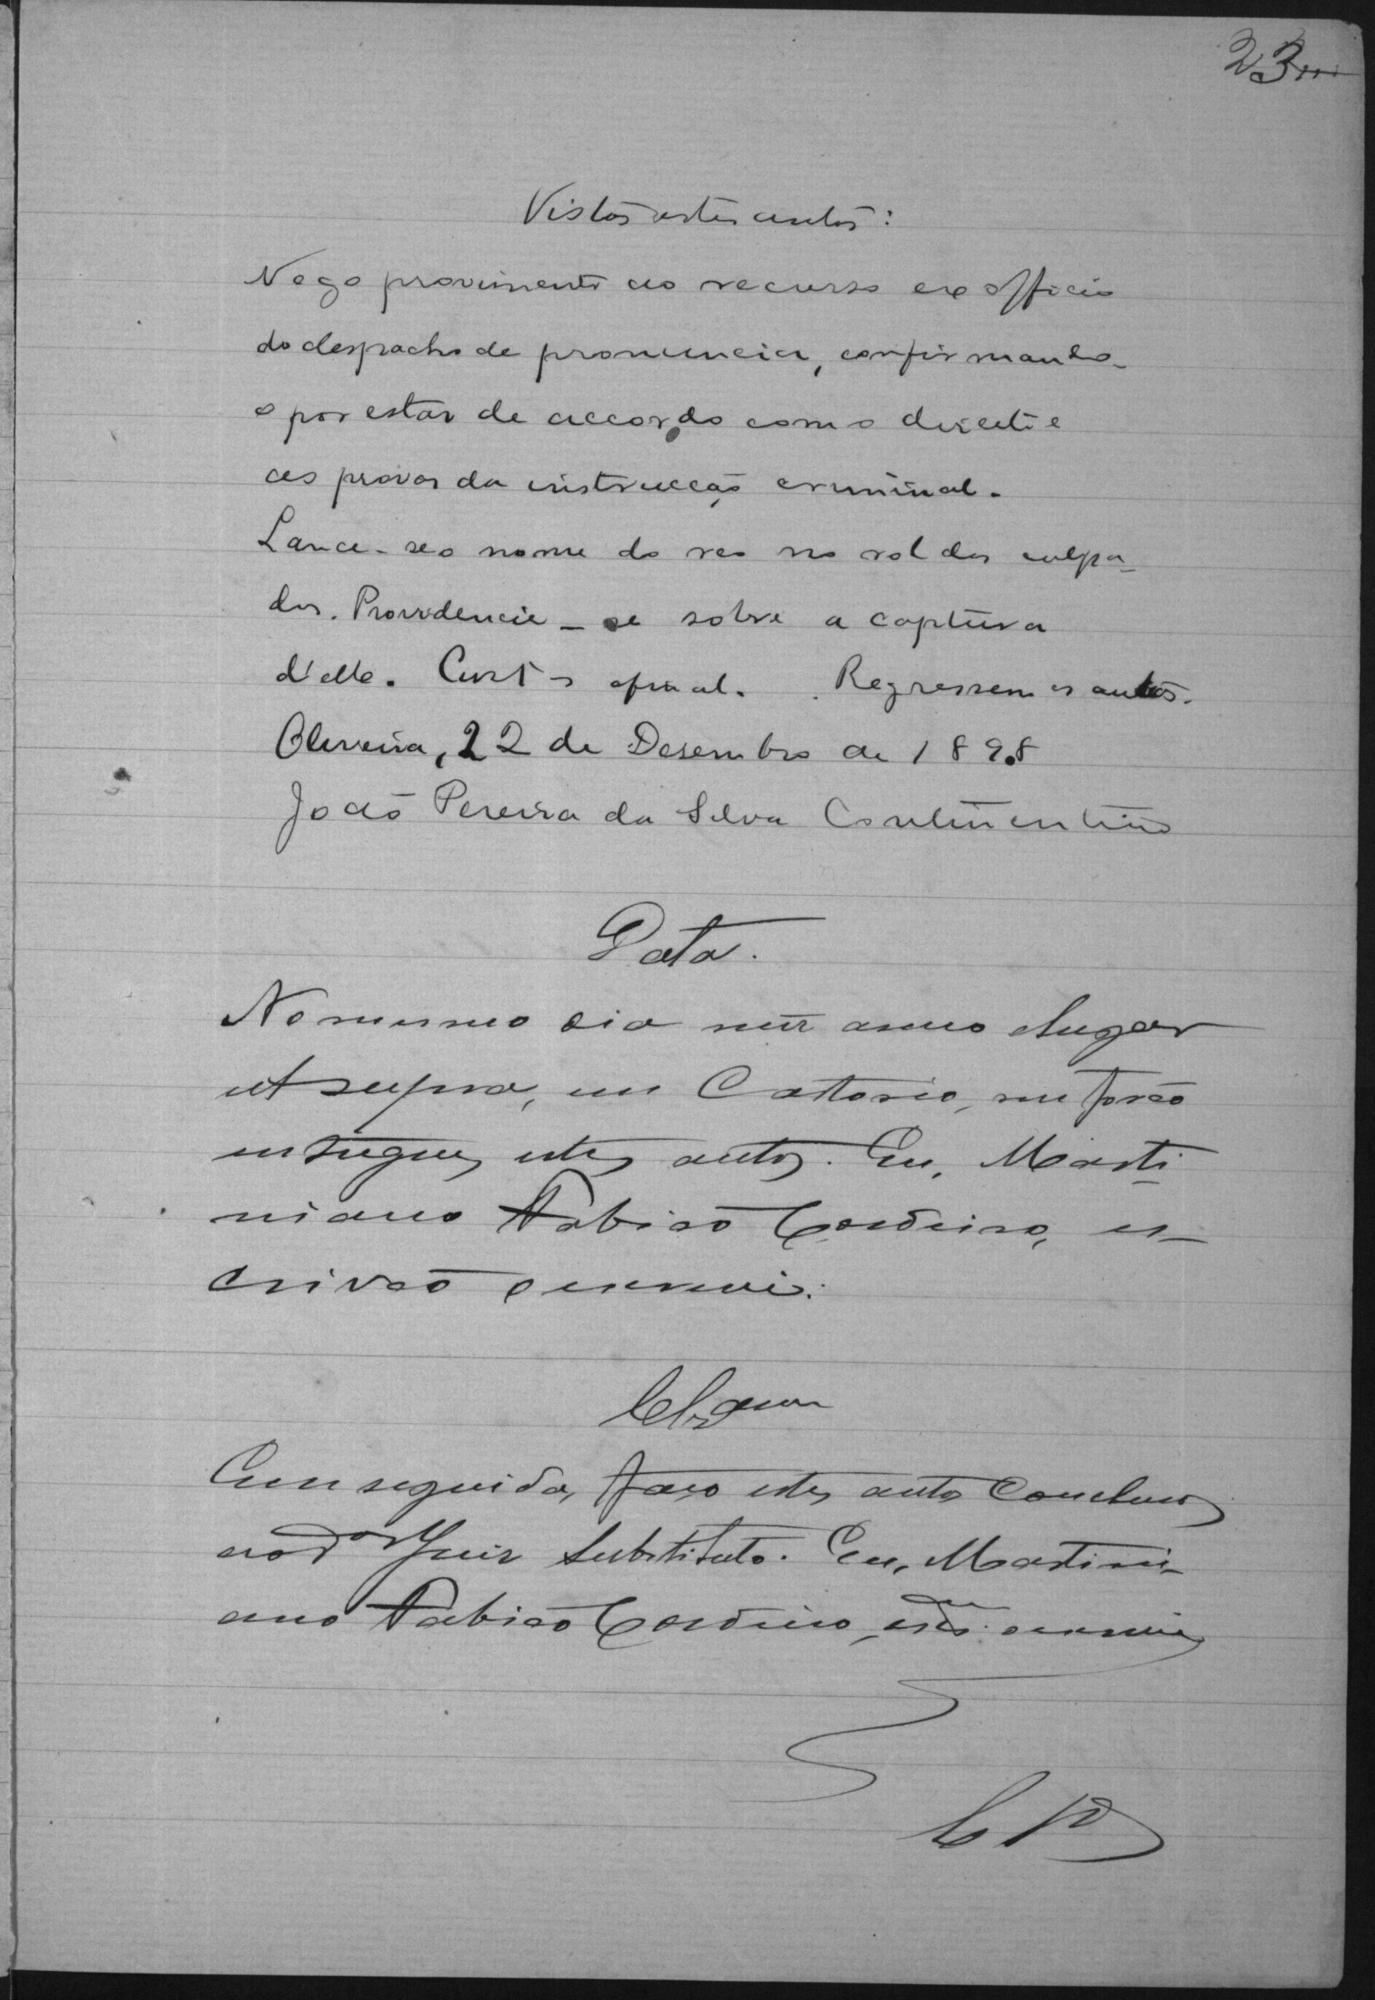 23
Vistos estes autos:
Nego provimento ao recurso ex officio
do despacho de pronuncia, confirmando-
o por estar de accordo com o direito e
as provas da instrucção criminal.
Lance-se o nome do reo no rol dos culpa-
dos. Providencie-se sobre a captura
d'elle. Custas afinal. Regressem os autos.
Oliveira, 22 de Desembro de 1898
João Pereira da Silva Continentino
Data.
No mesmo dia mez anno e lugar
ut supra, em Cartorio, me forão
entregues estes autos. Eu, Marti-
niano Fabião Cordeiro, es-
crivão o escrevi.
Clzam
Em seguida, faço estes autos Conclusos
ao Dor Juiz Substituto. Eu, Martini-
ano Fabião Cordeiro, escam o escrevi